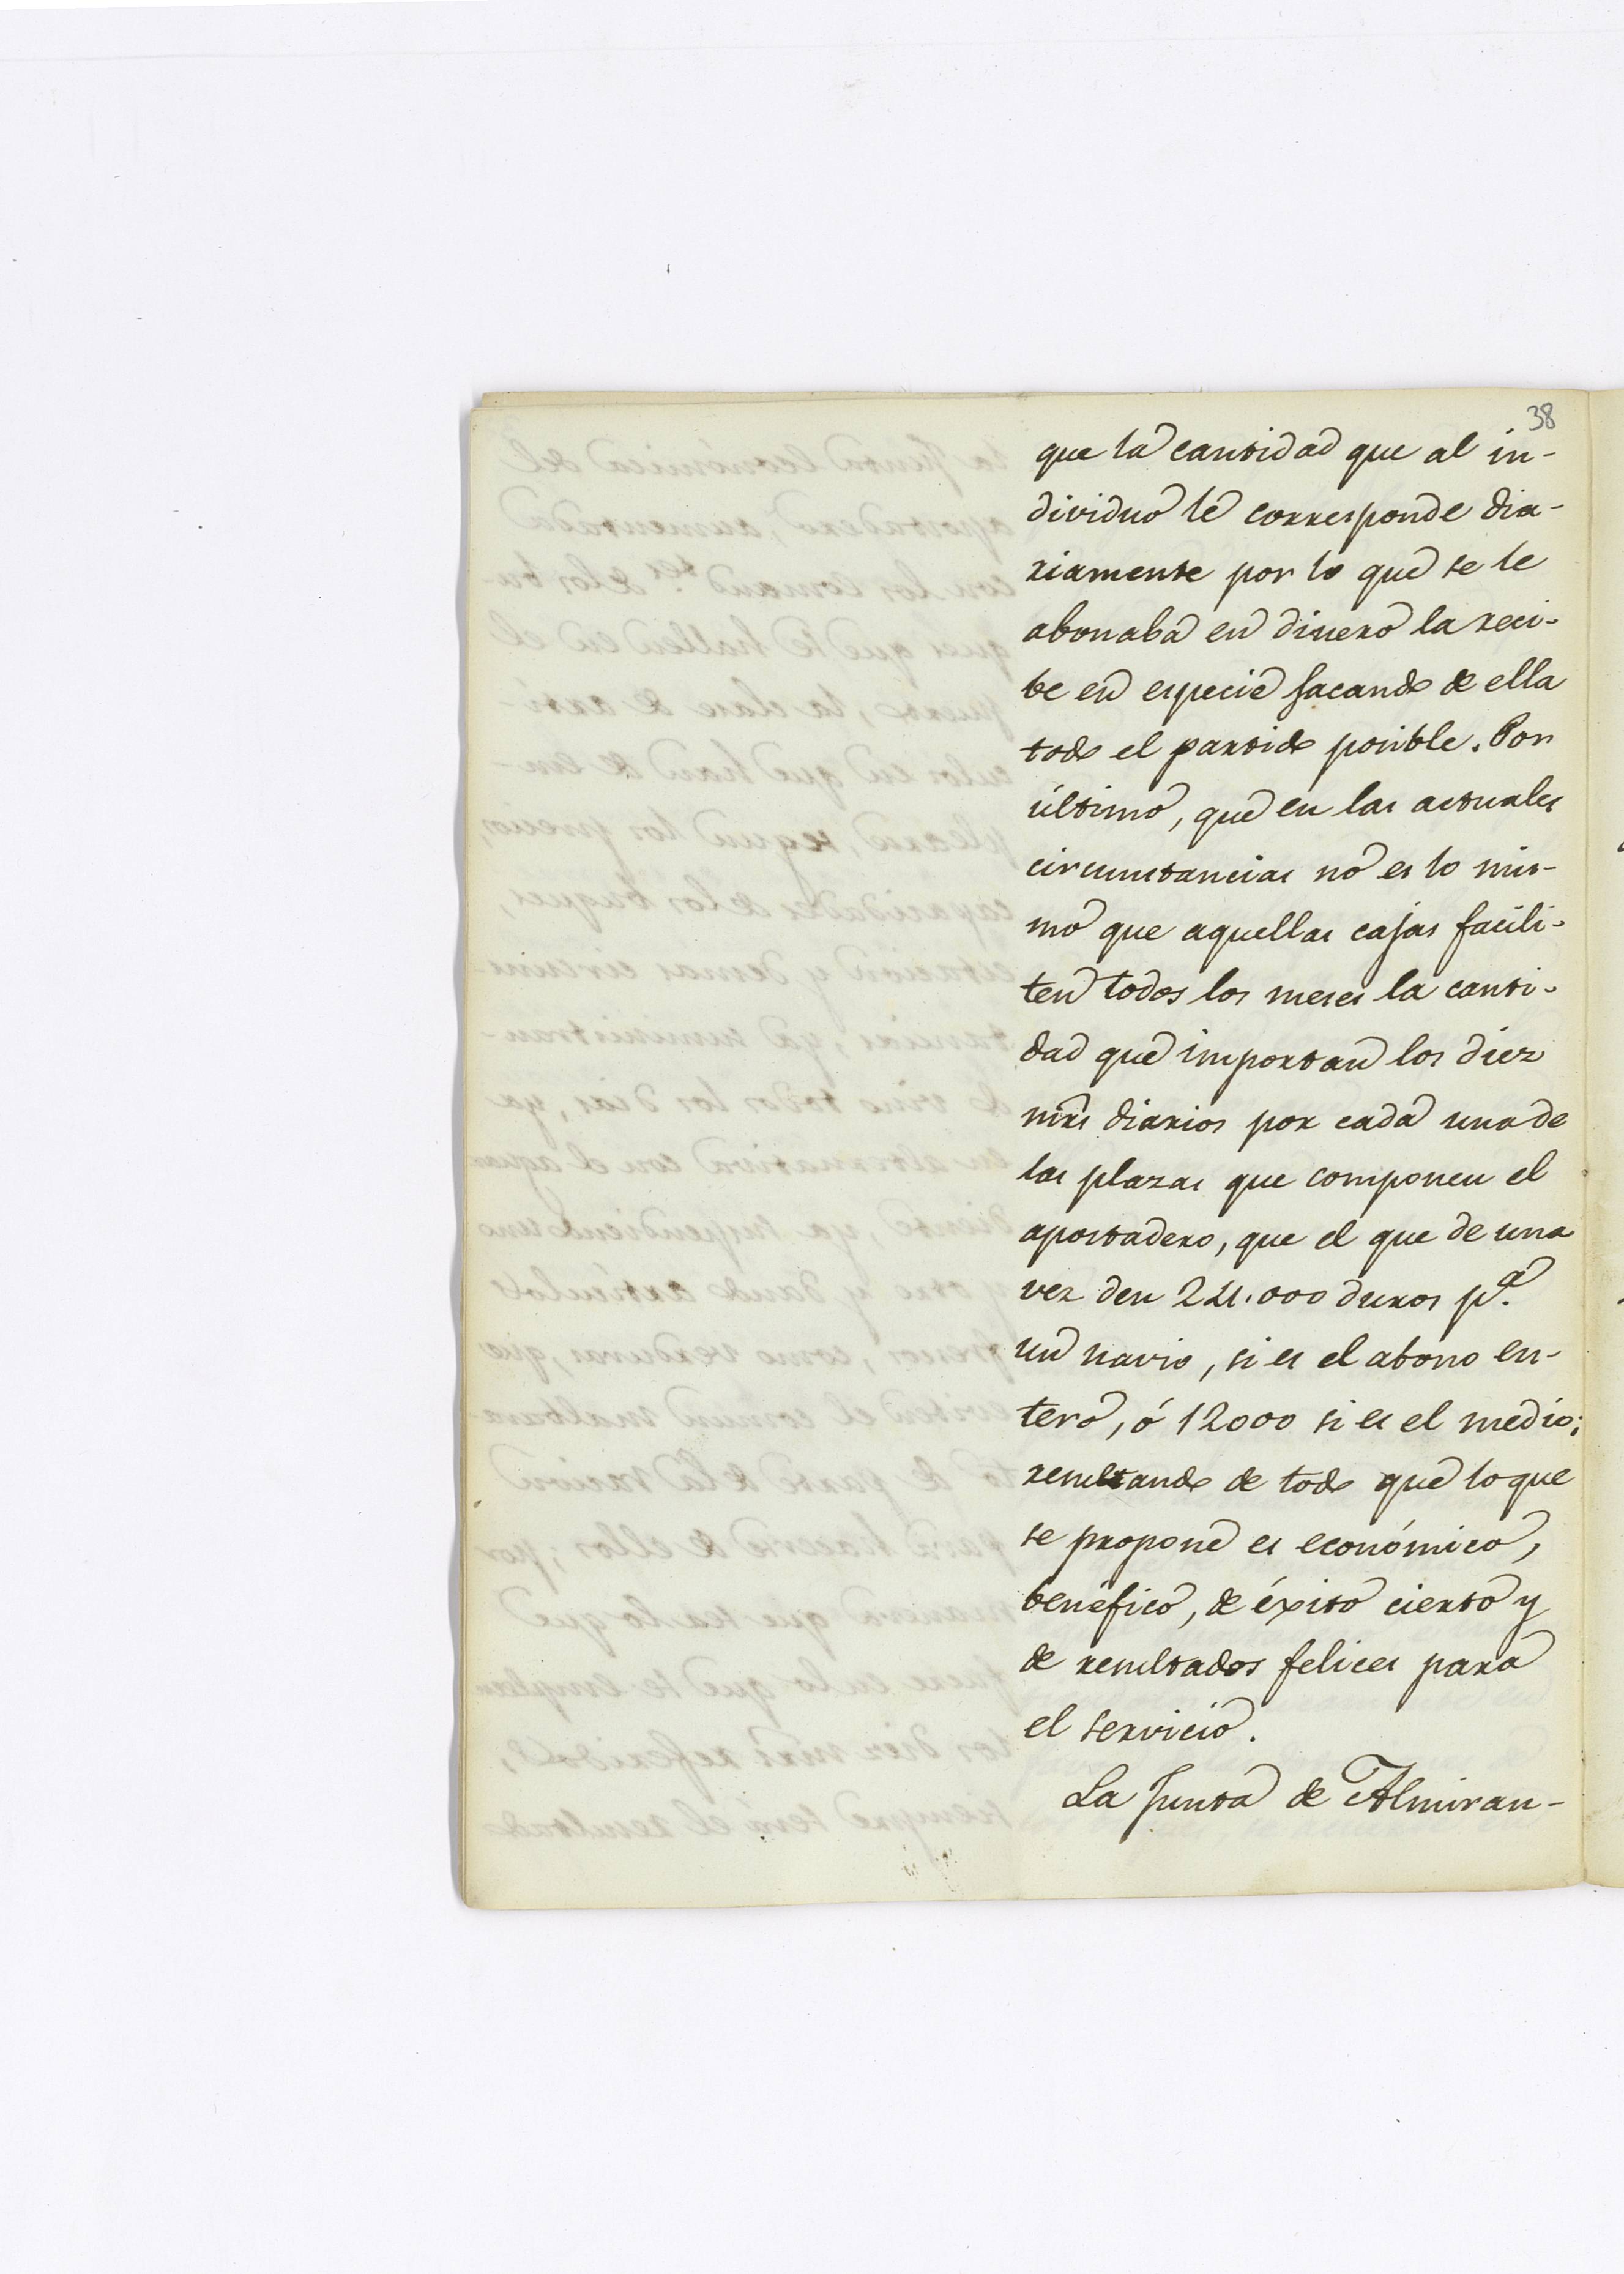 38
que la cantidad que al in-
dividuo le corresponde dia-
riamente por lo que se le
abonaba en dinero la reci-
be en especie sacando de ella
todo el partido posible. Por
último, que en las actuales
circunstancias no es lo mis-
mo que aquellas cajas facili-
ten todos los meses la canti-
dad que importan los diez
mrs diarios por cada una de
las plazas que componen el
apostadero, que el que de una
vez den 24.000 duros pª.
un navio, si es el abono en-
tero, ó 12000 si es el medio;
resultando de todo que lo que
se propone es económico,
benéfico, de éxito cierto y
de resultados felices para
el servicio.
La Junta de Almiran-